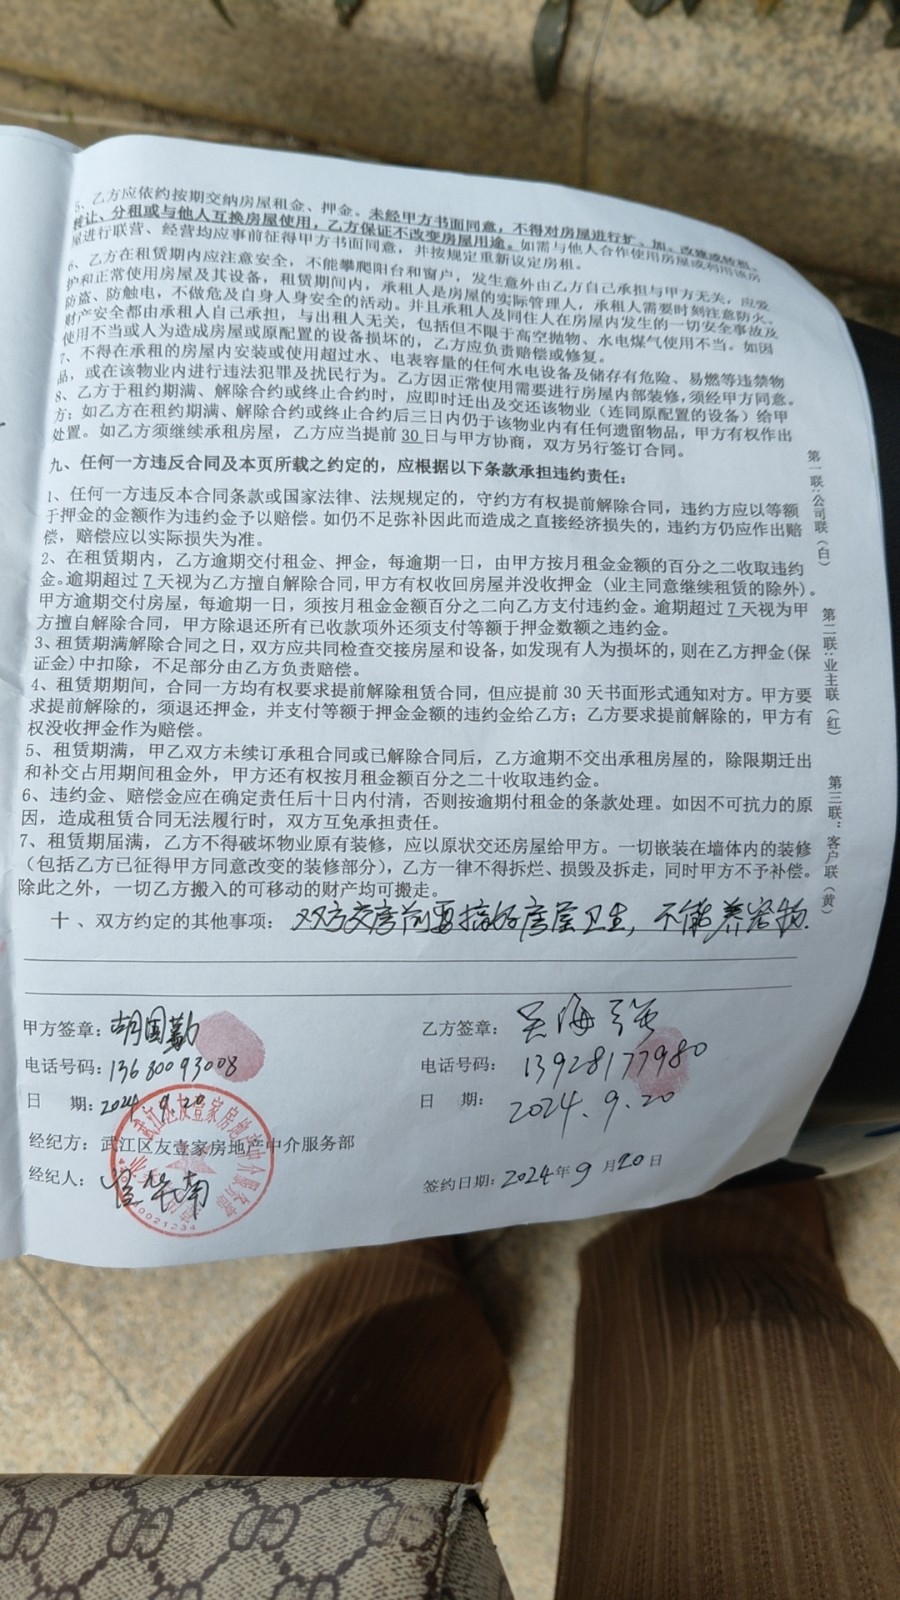 5、乙方应依约按期交纳房屋租金、押金。未经甲方书面同意，不得对房屋进行扩、加、改建或转租、
转让、分租或与他人互换房屋使用，乙方保证不改变房屋用途。如需与他人合作使用房屋或利用该房
屋进行联营、经营均应事前征得甲方书面同意，并按规定重新议定房租。
6、乙方在租赁期内应注意安全，不能攀爬阳台和窗户，发生意外由乙方自己承担与甲方无关，应爱
护和正常使用房屋及其设备，租赁期间内，承租人是房屋的实际管理人，承租人需要时刻注意防火、
防盗、防触电，不做危及自身人身安全的活动。并且承租人及同住人在房屋内发生的一切安全事故及
财产安全都由承租人自己承担，与出租人无关，包括但不限于高空抛物、水电煤气使用不当。如因
使用不当或人为造成房屋或原配置的设备损坏的，乙方应负责赔偿或修复。
7、不得在承租的房屋内安装或使用超过水、电表容量的任何水电设备及储存有危险、易燃等违禁物
品，或在该物业内进行违法犯罪及扰民行为。乙方因正常使用需要进行房屋内部装修，须经甲方同意。
8、乙方于租约期满、解除合约或终止合约时，应即时迁出及交还该物业（连同原配置的设备）给甲
方；如乙方在租约期满、解除合约或终止合约后三日内仍于该物业内有任何遗留物品，甲方有权作出
处置。如乙方须继续承租房屋，乙方应当提前30日与甲方协商，双方另行签订合同。
九、任何一方违反合同及本页所载之约定的，应根据以下条款承担违约责任：
1、任何一方违反本合同条款或国家法律、法规规定的，守约方有权提前解除合同，违约方应以等额
于押金的金额作为违约金予以赔偿。如仍不足弥补因此而造成之直接经济损失的，违约方仍应作出赔
偿，赔偿应以实际损失为准。
2、在租赁期内，乙方逾期交付租金、押金，每逾期一日，由甲方按月租金金额的百分之二收取违约
金。逾期超过7天视为乙方擅自解除合同，甲方有权收回房屋并没收押金（业主同意继续租赁的除外）。
甲方逾期交付房屋，每逾期一日，须按月租金金额百分之二向乙方支付违约金。逾期超过7天视为甲
方擅自解除合同，甲方除退还所有已收款项外还须支付等额于押金数额之违约金。
3、租赁期满解除合同之日，双方应共同检查交接房屋和设备，如发现有人为损坏的，则在乙方押金(保
证金)中扣除，不足部分由乙方负责赔偿。
4、租赁期期间，合同一方均有权要求提前解除租赁合同，但应提前30天书面形式通知对方。甲方要
求提前解除的，须退还押金，并支付等额于押金金额的违约金给乙方；乙方要求提前解除的，甲方有
权没收押金作为赔偿。
5、租赁期满，甲乙双方未续订承租合同或已解除合同后，乙方逾期不交出承租房屋的，除限期迁出
和补交占用期间租金外，甲方还有权按月租金额百分之二十收取违约金。
6、违约金、赔偿金应在确定责任后十日内付清，否则按逾期付租金的条款处理。如因不可抗力的原
因，造成租赁合同无法履行时，双方互免承担责任。
7、租赁期届满，乙方不得破坏物业原有装修，应以原状交还房屋给甲方。一切嵌装在墙体内的装修
（包括乙方已征得甲方同意改变的装修部分），乙方一律不得拆烂、损毁及拆走，同时甲方不予补偿。
除此之外，一切乙方搬入的可移动的财产均可搬走。
十、双方约定的其他事项：双方交房前要搞好房屋卫生，不能养宠物.
甲方签章：胡国勤
乙方签章：吴海强
电话号码：13680093008
电话号码：13928177980
日 期：2024.9.20
日 期：2024.9.20
经纪方：武江区友壹家房地产中介服务部
经纪人：
签约日期：2024年9月20日
武江区友壹家房地产中介服务部
第一联：公司联（白）
第二联：业主联（红）
第三联：客户联（黄）